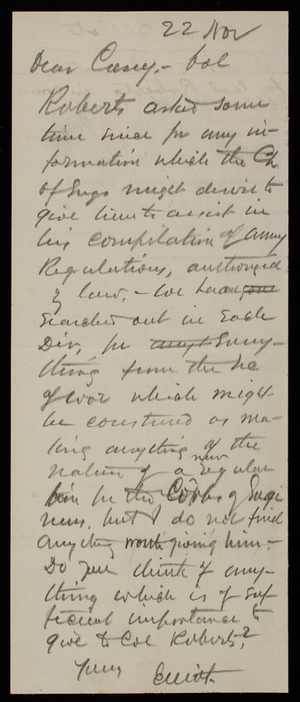 22 Nov
Dear Casey, - Col
Roberts asked some
time since for any in-
formation which the Ch
of Engs might desire to
give him to assist in
his compilation of Army
Regulations, authorized
by law, - we have
searched out in Each
Div, for Every-
thing from the Sec
of War which might
be construed as ma-
king anything of the
nature of a new regula
for the Corps of Engi
neers, but I do not find
anything worth giving him. -
Do you think of any-
thing which is of suf
ficient importance to
give to Col Roberts?
Yours
Elliot.